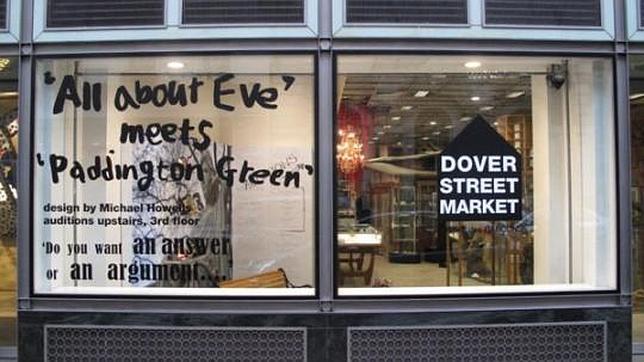 'All about Eve'
meets
'Paddington Green'
design by Michael Howells
auditions upstairs, 3rd floor
'Do you want an answer
or an argument....
DOVER
STREET
MARKET